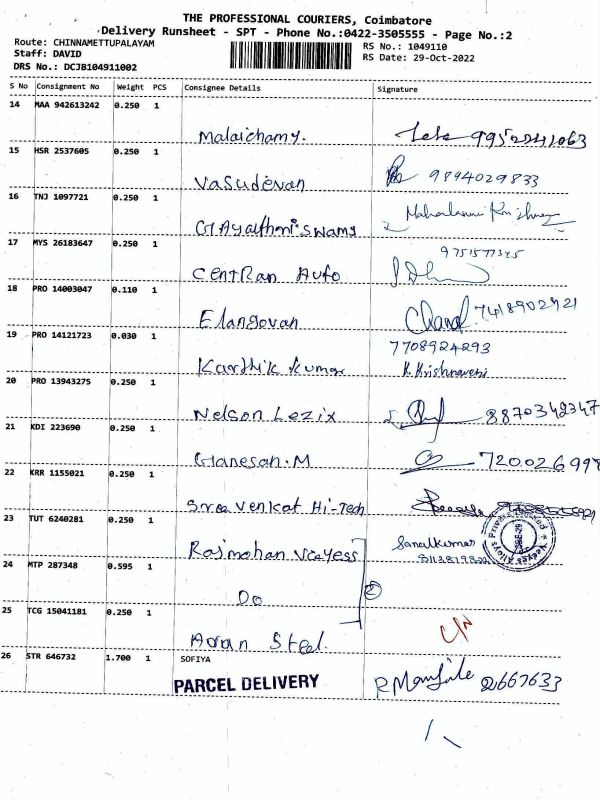 THE PROFESSIONAL COURIERS, Coimbatore
Delivery Runsheet - SPT - Phone No.:0422-3505555 - Page No.:2
Route: CHINNAMETTUPALAYAM
Staff: DAVID
DRS No.: DCJB104911002
RS No.: 1049110
RS Date: 29-Oct-2022
S No Consignment No Weight PCS Consignee Details Signature
14 MAA 942613242 0.250 1
Malaichamy.
15 HSR 2537605 0.250 1
Vasudevan 9894029833
16 TNJ 1097721 0.250 1
17 MYS 26183647 0.250 1
Centran Auto 9751577345
18 PRO 14003047 0.110 1
Elangovan 7418902921
19 PRO 14121723 0.030 1
7708924293
Karthik Kumar K. Krishnaveni
20 PRO 13943275 0.250 1
Nelson Lezix 8870342347
21 KDI 223690 0.250 1
Ganesan.M 720026997
22 KRR 1155021 0.250 1
Sree Venkat Hi-Tech
23 TUT 6240281 0.250 1
Rajmohan Veeyess Sanalkumar
24 MTP 287348 0.595 1
Do 2
25 TCG 15041181 0.250 1
Aran Steel.
26 STR 646732 1.700 1 SOFIYA
PARCEL DELIVERY 2667633